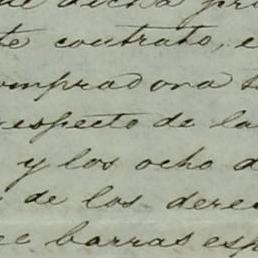 de dicha pr
te contrato, e
ompradora t
respecto de la
y los ocho d
de los derec
ce barras esp